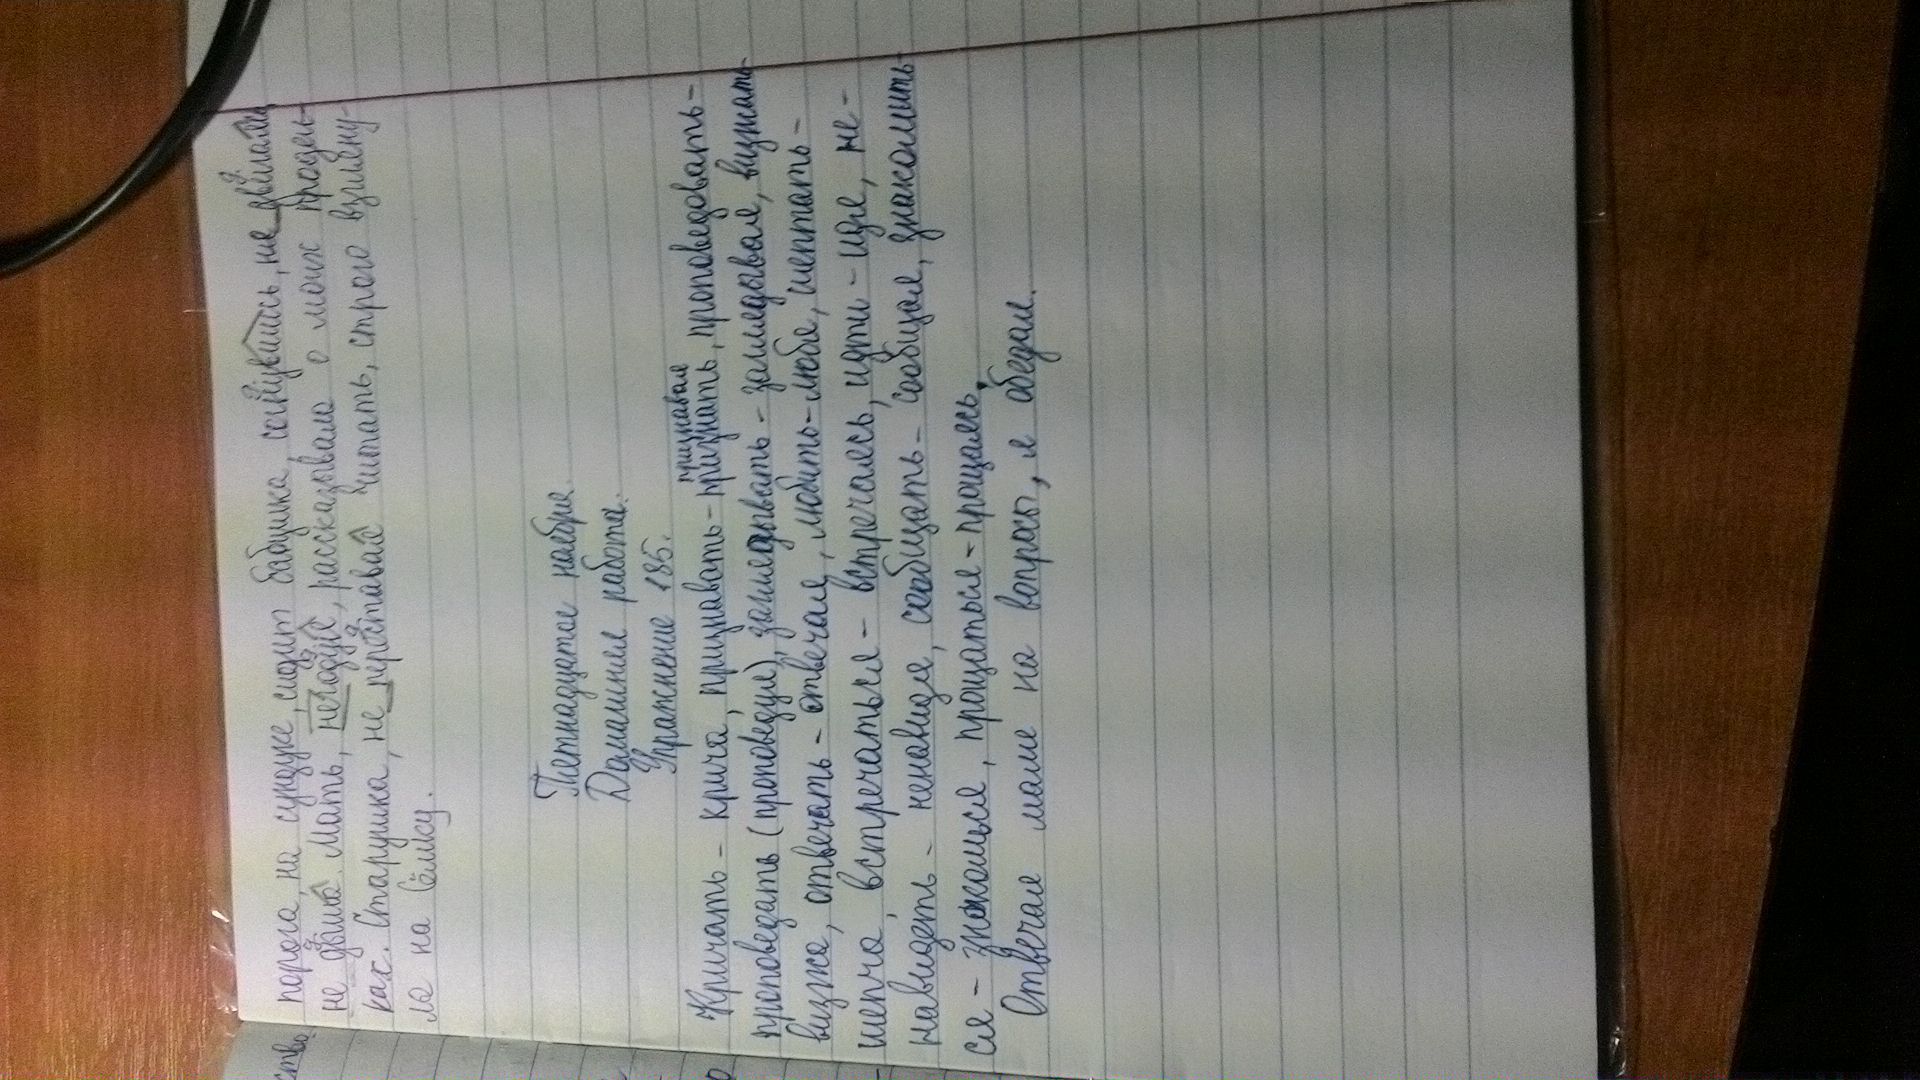 порога, на сундуке, сидит бабушка, согнувшись, не двигаясь
не дыша. Мать, негодуя, рассказывала о моих продел-
ках. Старушка, не переставая читать, строго взгляну-
ла на ёлку.
Пятнадцатое ноября.
Домашняя работа.
Упражнение 185.
признавая
Кричать - крича, признавать - признать, проповедовать -
проповедать (проповедуя), заглядывать - заглядывая, визжать -
визжа, отвечать - отвечая, любить - любя, шептать -
шепча, встречаться - встречаясь, идти - идя, не-
навидеть - ненавидя, сообщать - сообщая, знакомить-
ся - знакомься, прощаться - прощаясь.
Отвечая маме на вопросы, я обедал.
ство.